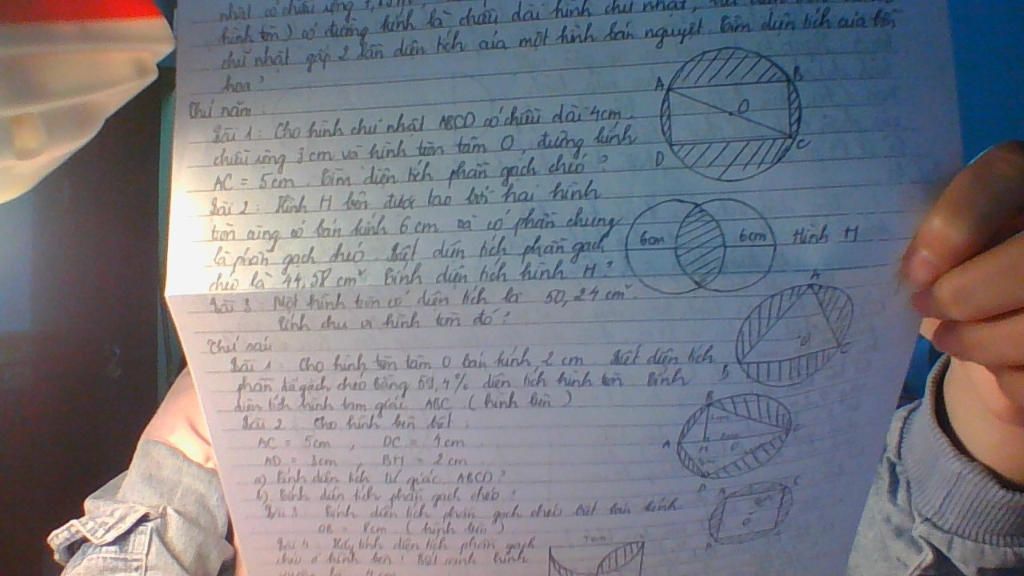 nhật có chiều rộng
hình tròn) có đường kính là chiều dài hình chữ nhật,
chữ nhật gấp 2 lần diện tích của một hình bán nguyệt. Tìm diện tích của bồn
hoa?
Thứ năm
Bài 1: Cho hình chữ nhật ABCD có chiều dài 4cm
chiều rộng 3cm và hình tròn tâm O, đường kính
AC = 5cm. Tìm diện tích phần gạch chéo?
A B O D C
Bài 2: Hình H bên được tạo bởi hai hình
tròn cùng có bán kính 6cm và có phần chung
là phần gạch chéo. Biết diện tích phần gạch
chéo là 44,58 cm². Tính diện tích hình H?
6cm 6cm Hình H
Bài 3: Một hình tròn có diện tích là 50,24 cm².
Tính chu vi hình tròn đó?
Thứ sáu
Bài 1: Cho hình tròn tâm O bán kính 2cm. Biết diện tích
phần gạch chéo bằng 59,4% diện tích hình tròn. Tính
diện tích hình tam giác ABC (hình bên)
A B C
Bài 2: Cho hình bên biết:
AC = 5cm, DC = 4cm
AD = 3cm BH = 2cm
a) Tính diện tích tứ giác ABCD?
b) Tính diện tích phần gạch chéo?
B A H D
Bài 3: Tính diện tích phần gạch chéo biết bán kính
OB = 8cm (hình bên)
Bài 4: Hãy tính diện tích phần gạch
chéo ở hình bên? Biết cạnh hình
vuông là 4cm